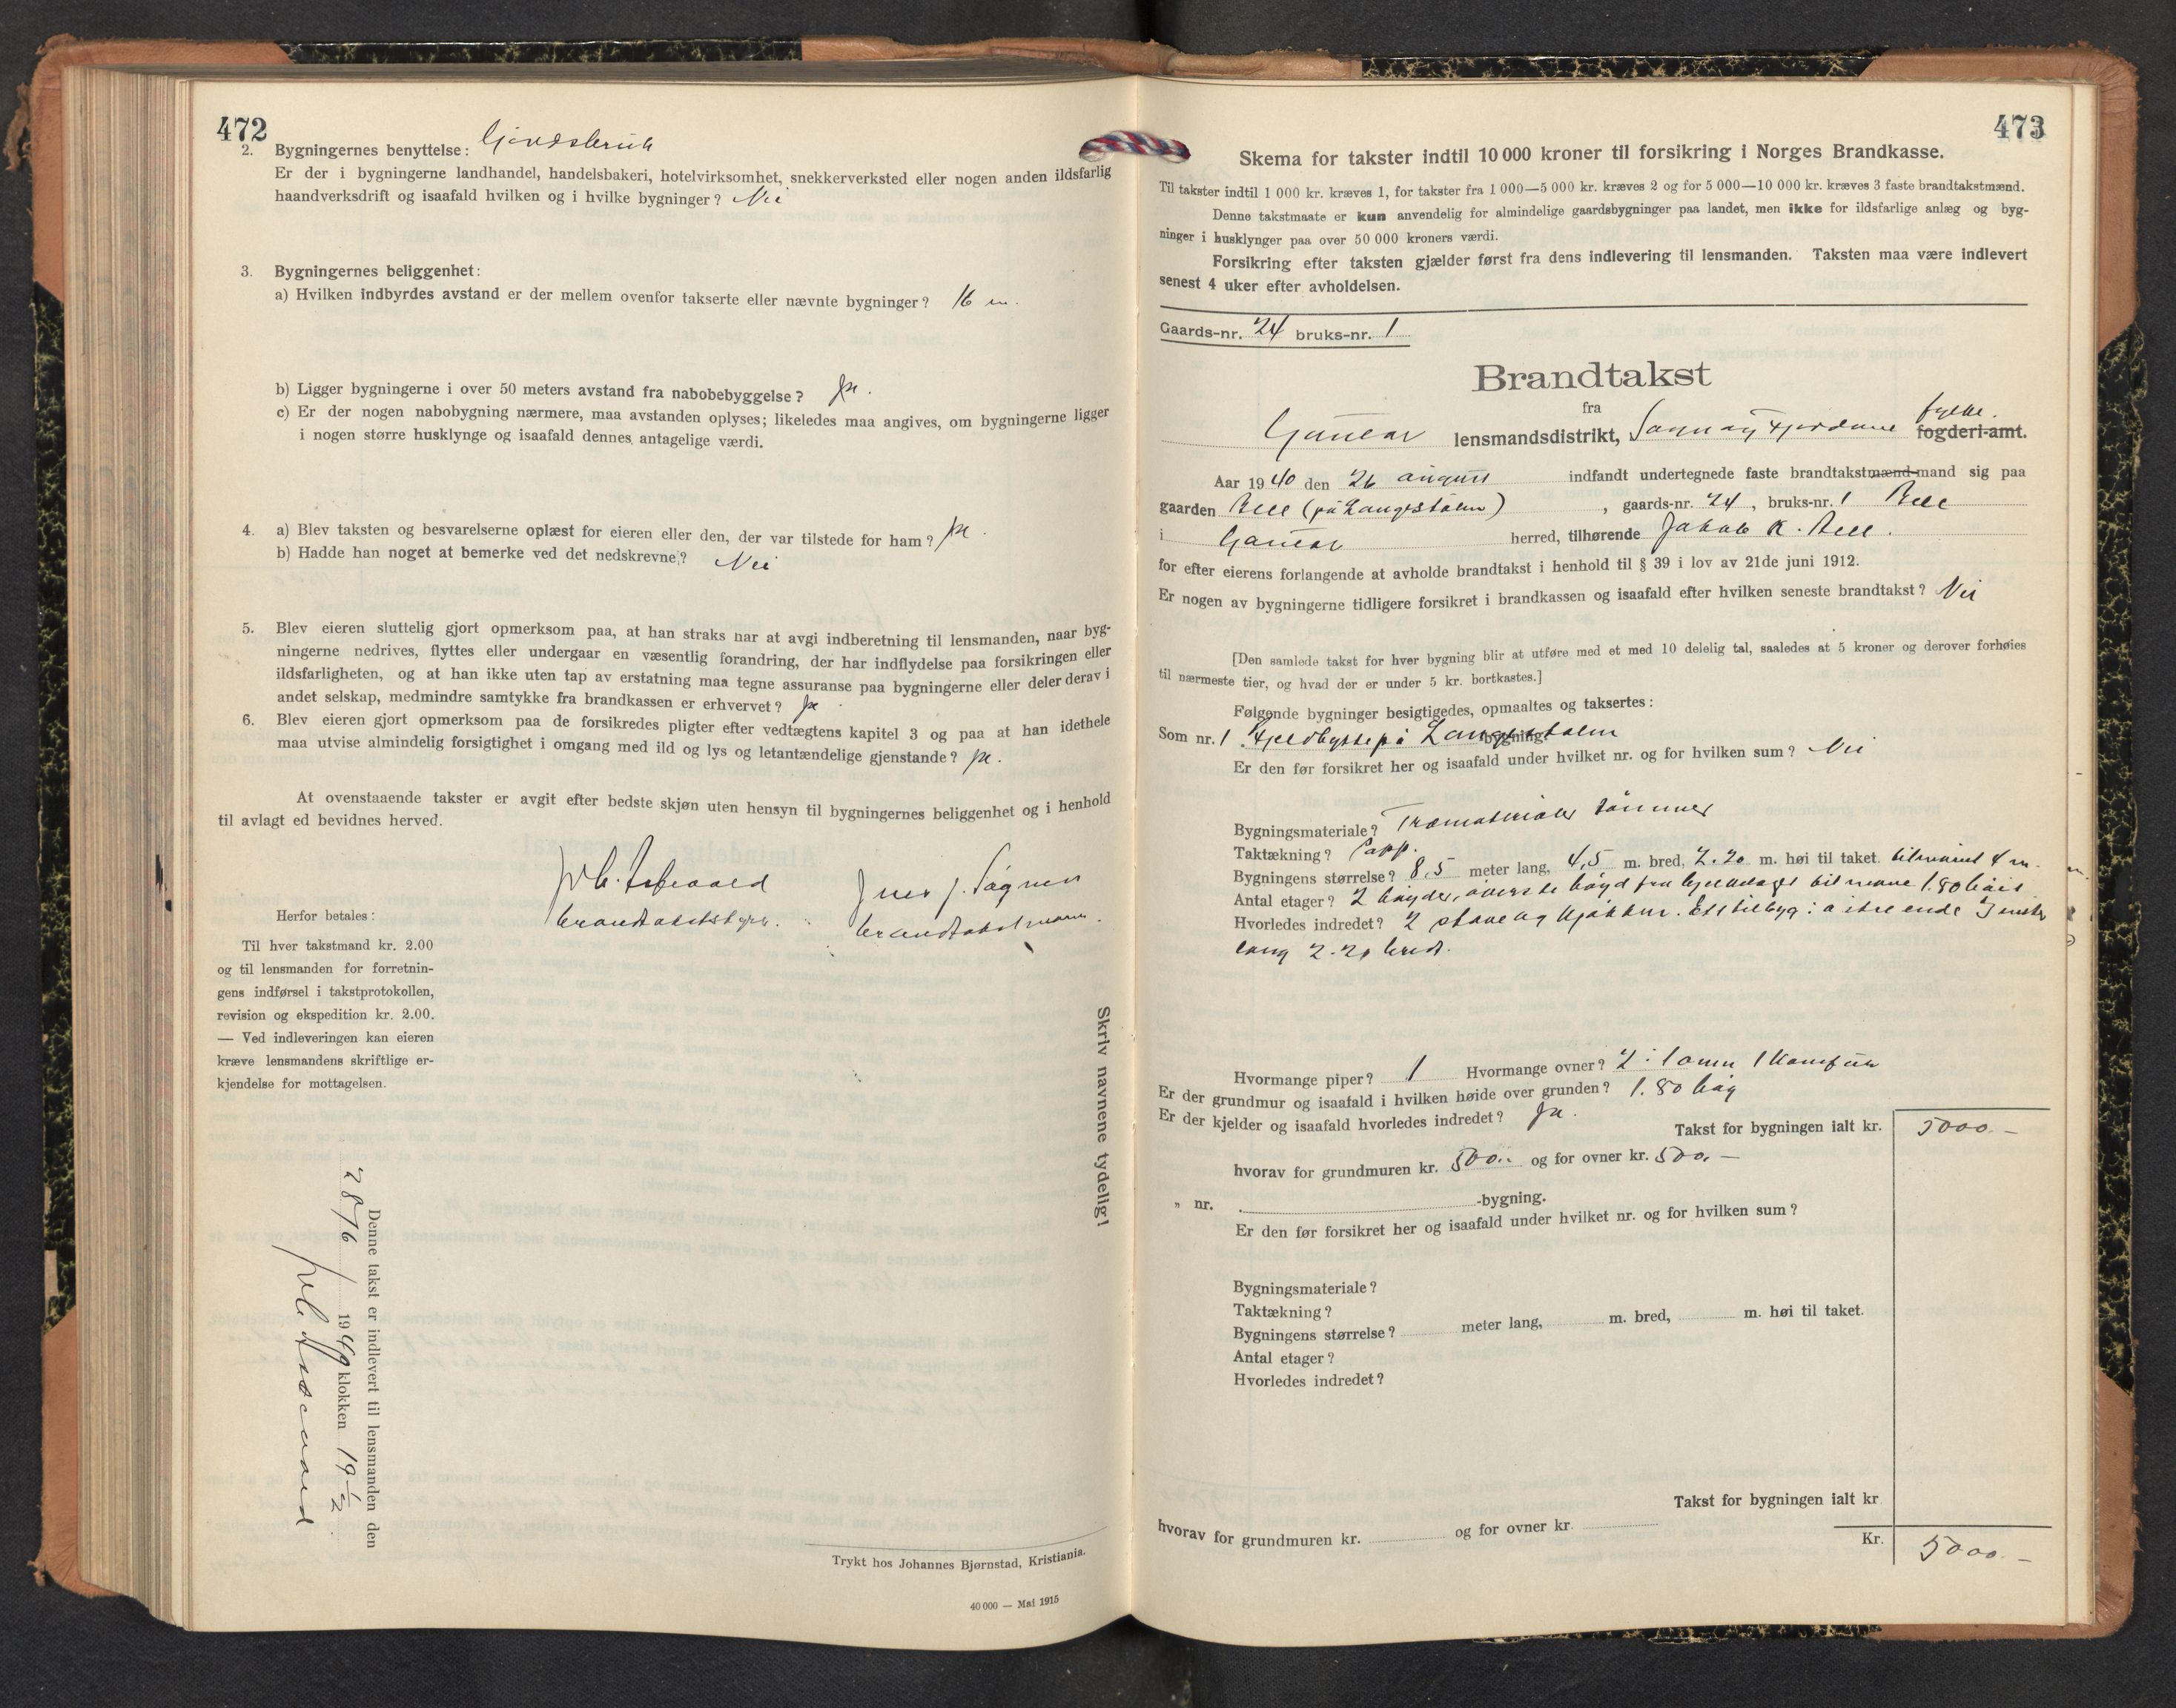 472
2. Bygningernes benyttelse: Gardsbruk
Er der i bygningerne landhandel, handelsbakeri, hotelvirksomhet, snekkerverksted eller nogen anden ildsfarlig
haandverksdrift og isaafald hvilken og i hvilke bygninger? Nei
3. Bygningernes beliggenhet:
a) Hvilken indbyrdes avstand er der mellem ovenfor takserte eller nævnte bygninger? 16 m.
b) Ligger bygningerne i over 50 meters avstand fra nabobebyggelse? Ja.
c) Er der nogen nabobygning nærmere, maa avstanden oplyses; likeledes maa angives, om bygningerne ligger
i nogen større husklynge og isaafald dennes antagelige værdi.
4. a) Blev taksten og besvarelserne oplæst for eieren eller den, der var tilstede for ham? Ja.
b) Hadde han noget at bemerke ved det nedskrevne? Nei
5. Blev eieren sluttelig gjort opmerksom paa, at han straks har at avgi indberetning til lensmanden, naar byg-
ningerne nedrives, flyttes eller undergaar en væsentlig forandring, der har indflydelse paa forsikringen eller
ildsfarligheten, og at han ikke uten tap av erstatning maa tegne assuranse paa bygningerne eller deler derav i
andet selskap, medmindre samtykke fra brandkassen er erhvervet? Ja
6. Blev eieren gjort opmerksom paa de forsikredes pligter efter vedtægtens kapitel 3 og paa at han idethele
maa utvise almindelig forsigtighet i omgang med ild og lys og letantændelige gjenstande? Ja.
At ovenstaaende takster er avgit efter bedste skjøn uten hensyn til bygningernes beliggenhet og i henhold
til avlagt ed bevidnes herved.
branntakstmann.
Herfor betales:
Til hver takstmand kr. 2.00
og til lensmanden for forretnin-
gens indførsel i takstprotokollen,
revision og ekspedition kr. 2.00.
— Ved indleveringen kan eieren
kræve lensmandens skriftlige er-
kjendelse for mottagelsen.
Skriv navnene tydelig!
Denne takst er indlevert til lensmanden den
1940 klokken 19 1/2
Trykt hos Johannes Bjørnstad, Kristiania.
40 000 — Mai 1915
473
Skema for takster indtil 10 000 kroner til forsikring i Norges Brandkasse.
Til takster indtil 1 000 kr. kræves 1, for takster fra 1 000—5 000 kr. kræves 2 og for 5 000—10 000 kr. kræves 3 faste brandtakstmænd.
Denne takstmaate er kun anvendelig for almindelige gaardsbygninger paa landet, men ikke for ildsfarlige anlæg og byg-
ninger i husklynger paa over 50 000 kroners værdi.
Forsikring efter taksten gjælder først fra dens indlevering til lensmanden. Taksten maa være indlevert
senest 4 uker efter avholdelsen.
Gaards-nr. 24 bruks-nr. 1
Brandtakst
fra
Gaular lensmandsdistrikt, Sogn og Fjordane fylke. fogderi-amt.
Aar 1940 den 26 august indfandt undertegnede faste brandtakstmænd-mand sig paa
gaarden Bell (på Langestølen), gaards-nr. 24, bruks-nr. 1 Bell
i Gaular herred, tilhørende Jakob K. Bell.
for efter eierens forlangende at avholde brandtakst i henhold til § 39 i lov av 21de juni 1912.
Er nogen av bygningerne tidligere forsikret i brandkassen og isaafald efter hvilken seneste brandtakst? Nei
[Den samlede takst for hver bygning blir at utføre med et med 10 delelig tal, saaledes at 5 kroner og derover forhøies
til nærmeste tier, og hvad der er under 5 kr. bortkastes.]
Følgende bygninger besigtigedes, opmaaltes og taksertes:
Som nr. 1 Fjeldhytte på Langestølen -bygning.
Er den før forsikret her og isaafald under hvilket nr. og for hvilken sum? Nei
Bygningsmateriale? Træmaterialer tømmer
Taktækning? Papp.
Bygningens størrelse? 8,5 meter lang, 4,5 m. bred, 2.20 m. høi til taket. til mønet 4 m.
Antal etager? 2 høgder, øverste høgd fra bjelkelaget til møne 1.80 høis
Hvorledes indredet? 2 stove og kjøkken. Ett tilbyg i østre ende 3 meter
lang 2.20 bredt.
Hvormange piper? 1 Hvormange ovner? 2: 1 omn 1 komfur
Er der grundmur og isaafald i hvilken høide over grunden? 1.80 høg
Er der kjelder og isaafald hvorledes indredet? Ja.
Takst for bygningen ialt kr. 5000.—
hvorav for grundmuren kr. 500.- og for ovner kr. 500.—
„ nr. -bygning.
Er den før forsikret her og isaafald under hvilket nr. og for hvilken sum?
Bygningsmateriale?
Taktækning?
Bygningens størrelse? meter lang, m. bred, m. høi til taket.
Antal etager?
Hvorledes indredet?
Takst for bygningen ialt kr
hvorav for grundmuren kr. og for ovner kr.
Kr. 5000.—